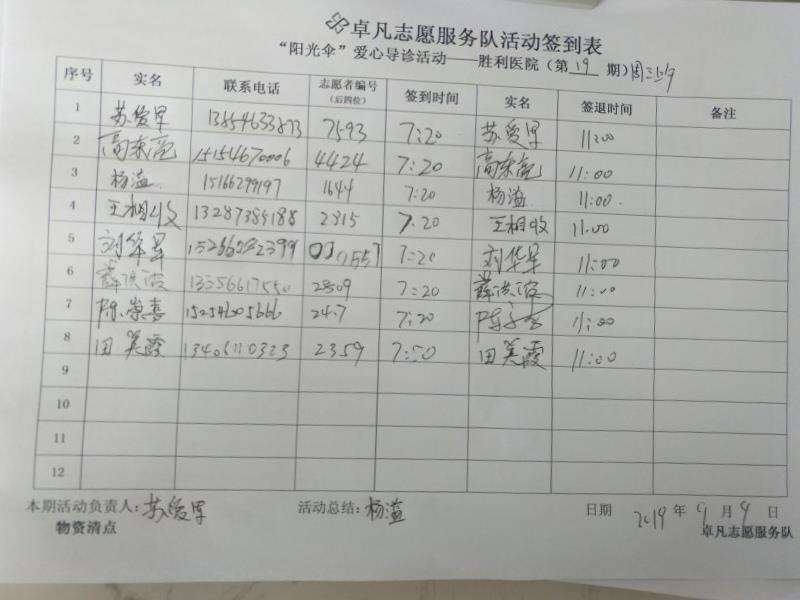 卓凡志愿服务队活动签到表
“阳光伞”爱心导诊活动——胜利医院（第 19 期）周三上午
序号 实名 联系电话 志愿者编号（后四位） 签到时间 实名 签退时间 备注
1 苏爱军 13854633873 7593 7:20 苏爱军 11:00
2 高来亮 15154670006 4424 7:20 高来亮 11:00
3 杨溢 15166299197 1644 7:20 杨溢 11:00
4 王相收 13287385188 2815 7:20 王相收 11:00
5 刘华星 7:20 刘华星 11:00
6 薛洪波 13356617550 2809 7:20 薛洪波 11:00
7 陈崇喜 15254605666 7:20 11:00
8 田美霞 13406110323 2359 7:50 田美霞 11:00
9
10
11
12
本期活动负责人：苏爱军 活动总结：杨溢 日期 2019 年 9 月 4 日
物资清点 卓凡志愿服务队